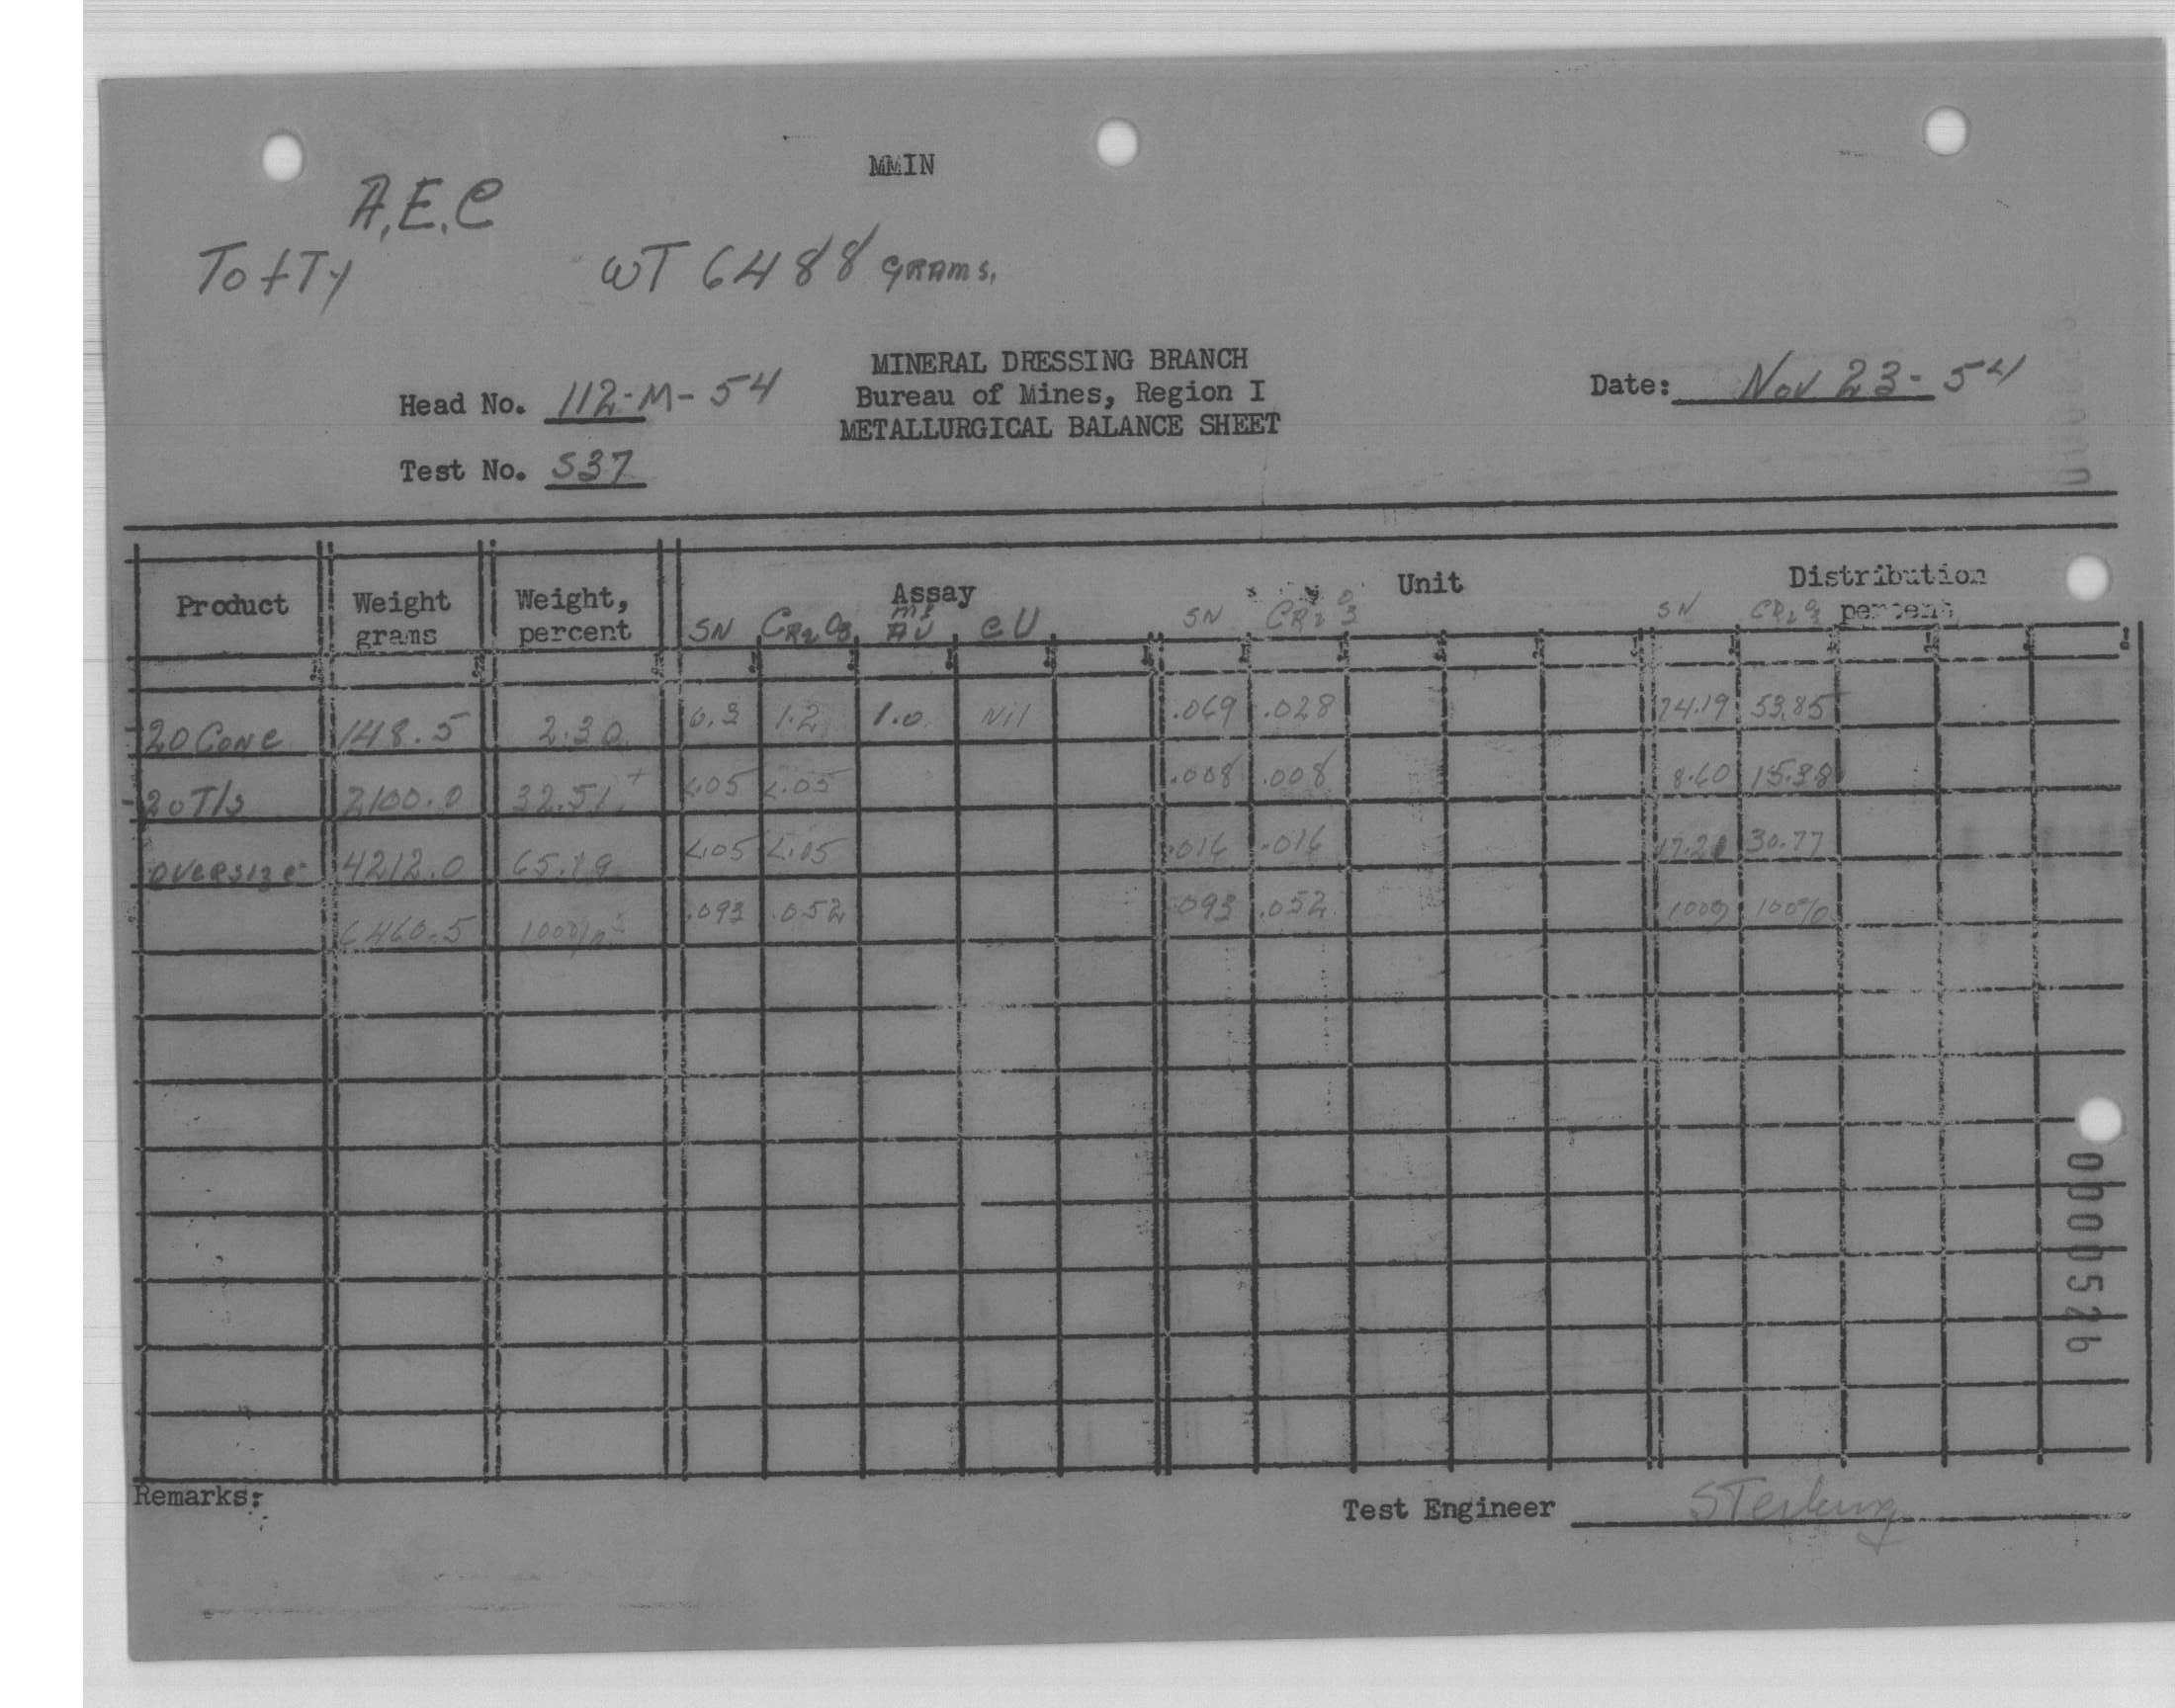 MMIN
A.E.C
Tofty WT 6488 GRAMS.
MINERAL DRESSING BRANCH
Head No. 112-M-54 Bureau of Mines, Region I Date: Nov 23-54
METALLURGICAL BALANCE SHEET
Test No. S37
Product Weight grams Weight, percent Assay Unit Distribution percent
SN CR2O3 AU eU SN CR2O3 SN CR2O3
-20 Conc 148.5 2.30 1.2 1.0 Nil .069 .028 74.19 53.85
-20 T/s 2100.0 32.51+ <.05 <.05 .008 .008 8.60 15.38
OVERSIZE 4212.0 65.19 <.05 <.05 .016 .016 17.21 30.77
6460.5 .093 .052 .093 .052 100% 100%
Remarks:
Test Engineer Sterling
0000526